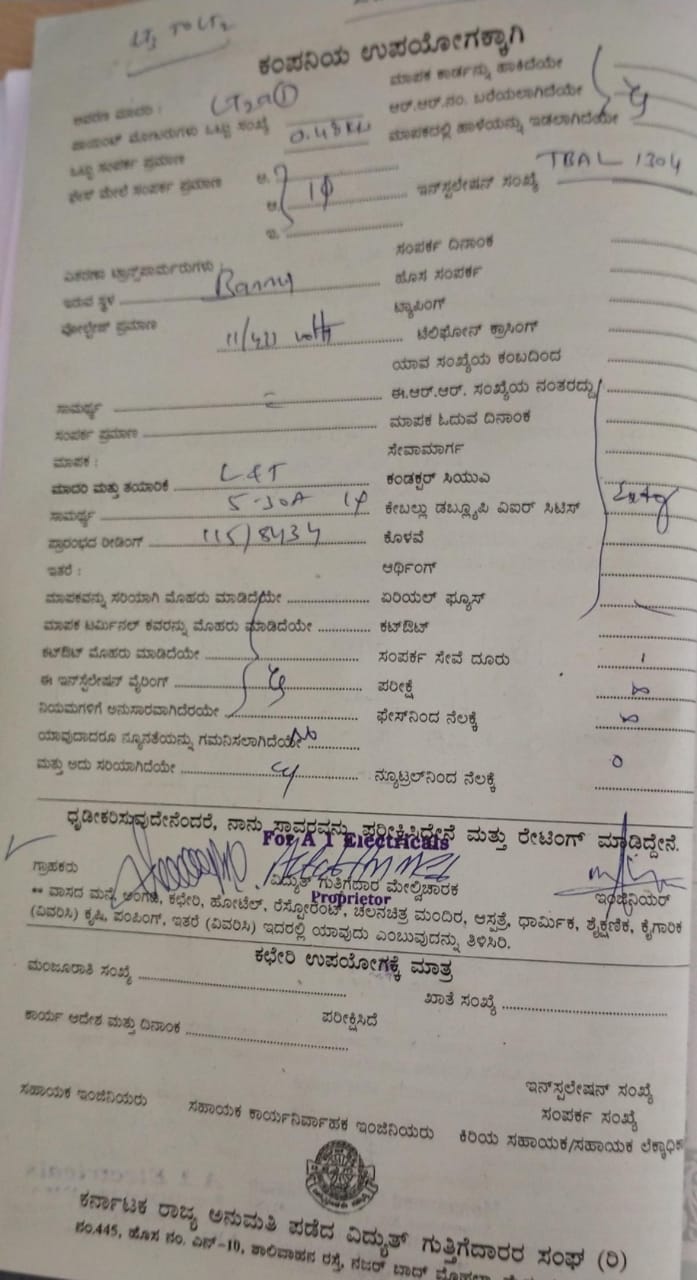 LT3 TO LT2
ಕಂಪನಿಯ ಉಪಯೋಗಕ್ಕಾಗಿ
ಮಾಪಕ ಕಾರ್ಡನ್ನು ಹಾಕಿದೆಯೇ
LT2a(1)
ಆರ್.ಆರ್.ನಂ. ಬರೆಯಲಾಗಿದೆಯೇ
ಒಟ್ಟು ಸಂಖ್ಯೆ 0.48 KW
ಮಾಪಕದಲ್ಲಿ ಹಾಳೆಯನ್ನು ಇಡಲಾಗಿದೆಯೇ
ಒಟ್ಟು ಸಂಪರ್ಕ ಪ್ರಮಾಣ
ಫೇಸ್ ಮೇಲೆ ಸಂಪರ್ಕ ಪ್ರಮಾಣ ಅ.
ಆ. 1φ
ಇ.
ಇನ್‌ಸ್ಟಲೇಷನ್ ಸಂಖ್ಯೆ TBAL 1304
ಸಂಪರ್ಕ ದಿನಾಂಕ
ಹೊಸ ಸಂಪರ್ಕ
ಇರುವ ಸ್ಥಳ
ಟ್ಯಾಪಿಂಗ್
ವೋಲ್ಟೇಜ್ ಪ್ರಮಾಣ 11/433 volts
ಟೆಲಿಫೋನ್ ಕ್ರಾಸಿಂಗ್
ಯಾವ ಸಂಖ್ಯೆಯ ಕಂಬದಿಂದ
ಸಾಮರ್ಥ್ಯ
ಈ.ಆರ್.ಆರ್. ಸಂಖ್ಯೆಯ ನಂತರದ್ದು
ಸಂಪರ್ಕ ಪ್ರಮಾಣ
ಮಾಪಕ ಓದುವ ದಿನಾಂಕ
ಮಾಪಕ :
ಸೇವಾಮಾರ್ಗ
ಮಾದರಿ ಮತ್ತು ತಯಾರಿಕೆ L&T
ಕಂಡಕ್ಟರ್ ಸಿಯುಎ
ಸಾಮರ್ಥ್ಯ 5-30A 1φ
ಕೇಬಲ್ಲು ಡಬ್ಲ್ಯೂಪಿ ಎಐರ್ ಸಿಟಿಸ್
ಪ್ರಾರಂಭದ ರೀಡಿಂಗ್ 115/8434
ಕೊಳವೆ
ಇತರೆ :
ಆರ್ಥಿಂಗ್
ಮಾಪಕವನ್ನು ಸರಿಯಾಗಿ ಮೊಹರು ಮಾಡಿದೆಯೇ
ಏರಿಯಲ್ ಫ್ಯೂಸ್
ಮಾಪಕ ಟರ್ಮಿನಲ್ ಕವರನ್ನು ಮೊಹರು ಮಾಡಿದೆಯೇ
ಕಟ್‌ಔಟ್
ಕಟ್‌ಔಟ್ ಮೊಹರು ಮಾಡಿದೆಯೇ
ಸಂಪರ್ಕ ಸೇವೆ ದೂರು
ಈ ಇನ್‌ಸ್ಟಲೇಷನ್ ವೈರಿಂಗ್
ಪರೀಕ್ಷೆ ∞
ನಿಯಮಗಳಿಗೆ ಅನುಸಾರವಾಗಿದೆರಯೇ
ಫೇಸ್‌ನಿಂದ ನೆಲಕ್ಕೆ ∞
ಯಾವುದಾದರೂ ನ್ಯೂನತೆಯನ್ನು ಗಮನಿಸಲಾಗಿದೆಯೇ No
ಮತ್ತು ಅದು ಸರಿಯಾಗಿದೆಯೇ
ನ್ಯೂಟ್ರಲ್‌ನಿಂದ ನೆಲಕ್ಕೆ 0
ಧೃಡೀಕರಿಸುವುದೇನೆಂದರೆ, ನಾನು ಸ್ಥಾವರವನ್ನು ಪರೀಕ್ಷಿಸಿದ್ದೇನೆ ಮತ್ತು ರೇಟಿಂಗ್ ಮಾಡಿದ್ದೇನೆ.
For A 1 Electricals
ಗ್ರಾಹಕರು
ವಿದ್ಯುತ್ ಗುತ್ತಿಗೆದಾರ ಮೇಲ್ವಿಚಾರಕ
ಇಂಜಿನಿಯರ್
Proprietor
** ವಾಸದ ಮನೆ, ಅಂಗಡಿ, ಕಛೇರಿ, ಹೋಟೆಲ್, ರೆಸ್ಟೋರೆಂಟ್, ಚಲನಚಿತ್ರ ಮಂದಿರ, ಆಸ್ಪತ್ರೆ, ಧಾರ್ಮಿಕ, ಶೈಕ್ಷಣಿಕ, ಕೈಗಾರಿಕ
(ವಿವರಿಸಿ) ಕೃಷಿ, ಪಂಪಿಂಗ್, ಇತರೆ (ವಿವರಿಸಿ) ಇದರಲ್ಲಿ ಯಾವುದು ಎಂಬುವುದನ್ನು ತಿಳಿಸಿರಿ.
ಕಛೇರಿ ಉಪಯೋಗಕ್ಕೆ ಮಾತ್ರ
ಮಂಜೂರಾತಿ ಸಂಖ್ಯೆ
ಖಾತೆ ಸಂಖ್ಯೆ
ಕಾರ್ಯ ಆದೇಶ ಮತ್ತು ದಿನಾಂಕ
ಪರೀಕ್ಷಿಸಿದೆ
ಇನ್‌ಸ್ಪಲೇಷನ್ ಸಂಖ್ಯೆ
ಸಂಪರ್ಕ ಸಂಖ್ಯೆ
ಸಹಾಯಕ ಇಂಜಿನಿಯರು
ಸಹಾಯಕ ಕಾರ್ಯನಿರ್ವಾಹಕ ಇಂಜಿನಿಯರು
ಕಿರಿಯ ಸಹಾಯಕ/ಸಹಾಯಕ ಲೆಕ್ಕಾಧಿಕ
ಕರ್ನಾಟಕ ರಾಜ್ಯ ಅನುಮತಿ ಪಡೆದ ವಿದ್ಯುತ್ ಗುತ್ತಿಗೆದಾರರ ಸಂಘ (ರಿ)
ನಂ.445, ಹೊಸ ನಂ. ಎನ್-10, ಶಾಲಿವಾಹನ ರಸ್ತೆ, ನಜರ್ ಬಾದ್